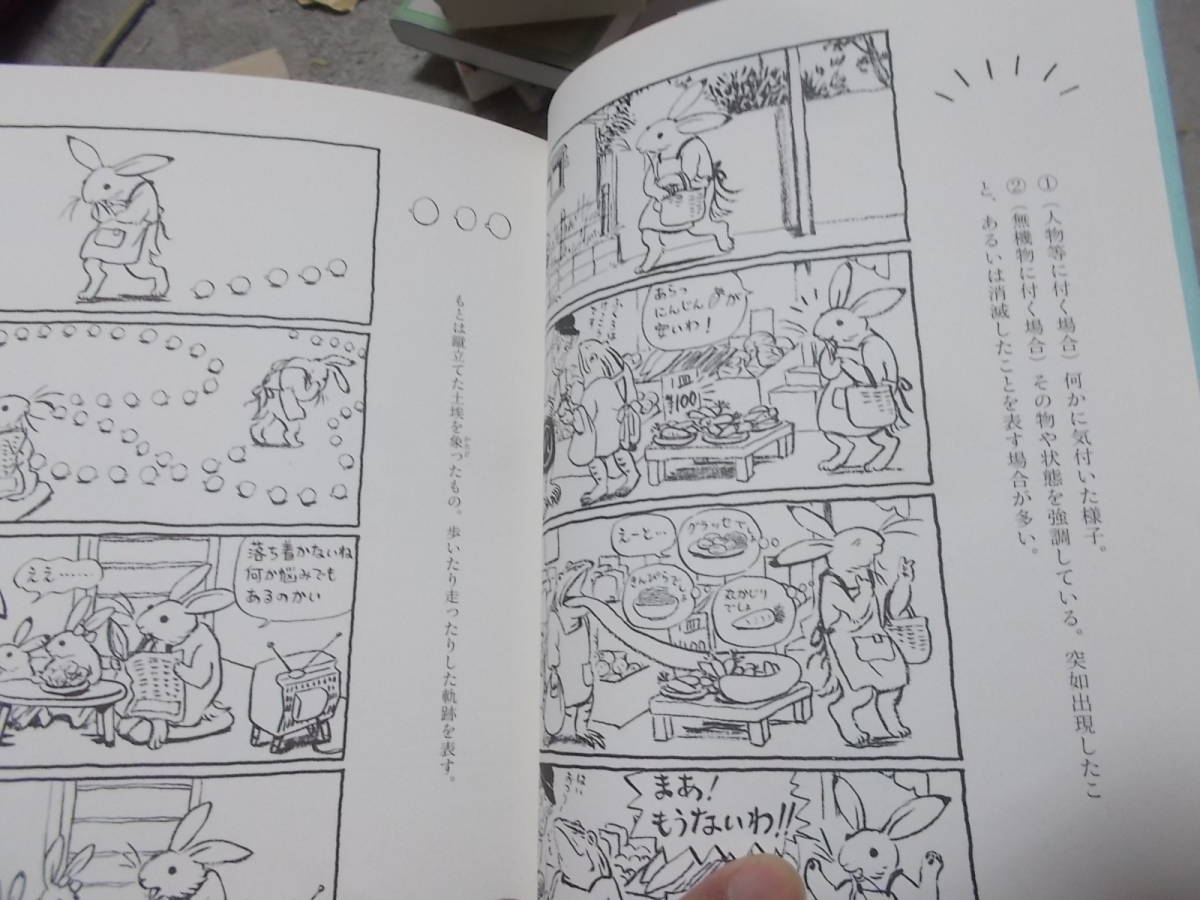 ①（人物等に付く場合）何かに気付いた様子。
②（無機物に付く場合）その物や状態を強調している。突如出現したこ
と、あるいは消滅したことを表す場合が多い。
あらっ
にんじんが
安いわ！
1皿
¥100
グラッセでしょ
えーと…
きんぴらでしょ
丸かじり
でしょ
1皿
まあ！
もうないわ!!
もとは蹴立てた土埃を象ったもの。歩いたり走ったりした軌跡を表す。
落ち着かないね
何か悩みでも
あるのかい
ええ……